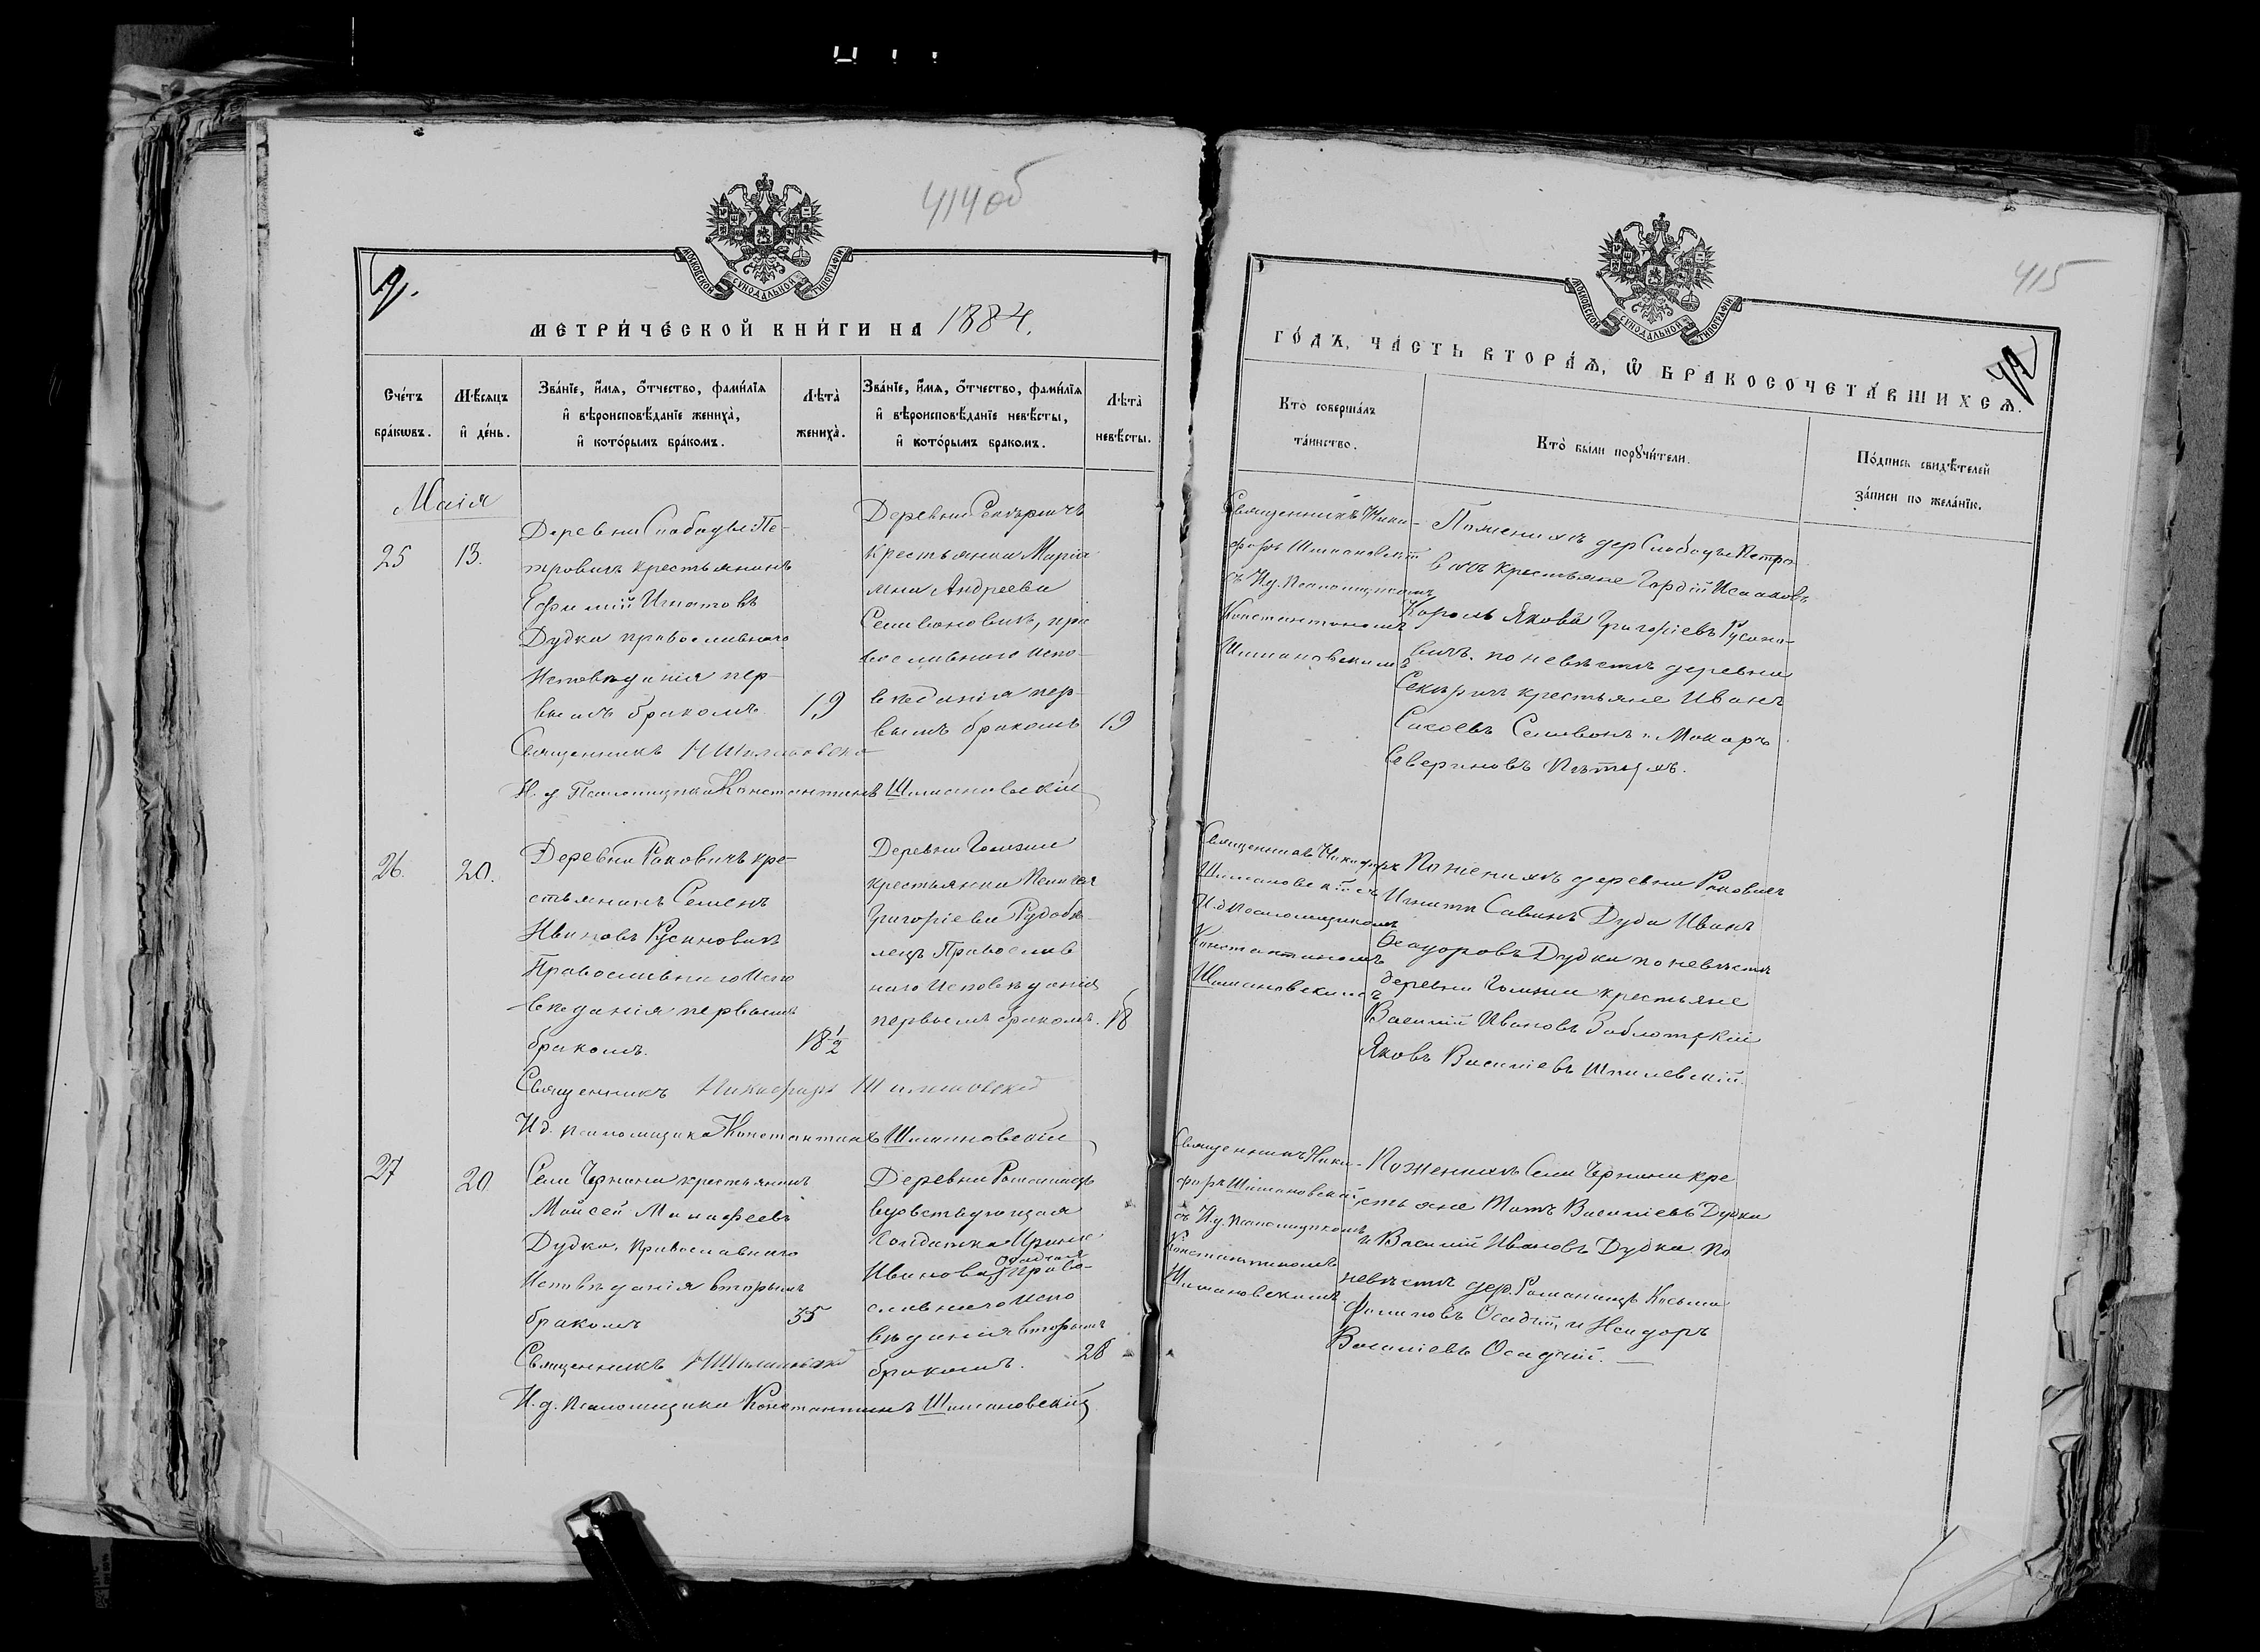 414 об
МОСКОВСКОЙ СѴНОДАЛЬНОЙ ТИПОГРАФІИ
МЕТРИ́ЧЕСКОЙ КНИ́ГИ НА 1884.
Сче́тъ бра́кѡвъ.
Мѣ́сяцъ и҆ де́нь.
Зва́нїе, и҆́мя, ѻ҆́тчество, фами́лїя
и҆ вѣроисповѣ́данїе жениха̀,
и҆ кото́рымъ бра́комъ.
Лѣта̀ жениха̀.
Зва́нїе, и҆́мя, ѻ҆́тчество, фами́лїя
и҆ вѣроисповѣ́данїе невѣ́сты,
и҆ кото́рымъ бракомъ.
Лѣта̀ невѣ́сты.
Маія
25
13.
Деревни Слободы Пе-
тровичъ крестьянинъ
Ефимій Игнатовъ
Дудка православнаго
Исповѣданія пер-
вымъ бракомъ
19
Деревни Секъричъ
крестьянка Марія
Андреева
Селивоновикъ, пра
вославнаго испо-
вѣданія пер-
вымъ бракомъ
19
Священникъ Н Шимановскій
И. д. Псаломщика Константинъ Шимановскій
26.
20.
Деревни Раковичъ кре-
стьянинъ Семенъ
Ивановъ Русиновикъ
Православнаго Испо
-вѣданія первымъ
бракомъ.
18 1/2
Деревни Голизни
крестьянка Пелагея
Григоріева Рудобе-
лецъ Православ
наго Исповѣданія
первымъ бракомъ.
18
Священникъ Никифоръ Шимановскій
И д. псаломщика Константинъ Шимановскій
27
20
Села Чернина крестьянинъ
Моисей Манафеевъ
Дудка, православнаго
Исповѣданія вторымъ
бракомъ
35
Деревни Романищъ
вдовствующая
Солдатка Ирина
Иванова Осадчая право-
славнаго испо
вѣданія вторымъ
бракомъ.
28
Священникъ Н Шимановскій
И. д. псаломщика Константинъ Шимановскій
415
МОСКОВСКОЙ СѴНОДАЛЬНОЙ ТИПОГРАФІИ
ГО́ДЪ, ЧА́СТЬ ВТОРА́Ѧ, Ѡ҆ БРАКОСОЧЕТА́ВШИХСѦ.
Кто̀ соверша́лъ та́инство.
Кто̀ бы́ли порꙋчи́тели.
По́дпись свидѣ́телей за́писи по жела́нїю.
Священникъ Ники-
форъ Шимановскій
съ И. д. псаломщикомъ
Константиномъ
Шимановскимъ
По женихѣ дер Слободы Петро
вичъ крестьяне Гордій Исааковъ
Король Яковъ Григоріевъ Русино-
вичъ. по невѣстѣ деревни
Секъричъ крестьяне Иванъ
Сысоевъ Селивонъ и Макаръ
Севериновъ
Священникъ Никифоръ
Шимановскій съ
И. д псаломщикомъ
Константиномъ
Шимановскимъ
По женихѣ деревни Раковичъ
Игнатъ Савинъ Дуда Иванъ
Ѳеодоровъ Дудка по невѣстѣ
деревни Голизни крестьяне
Василій Ивановъ Заблотскій
Яковъ Василіевъ Шпилевскій.
Священникъ Ники-
форъ Шимановскій
съ И. д. псаломщикомъ
Константиномъ
Шимановскимъ
По женихѣ Села Чернина кре
стьяне Титъ Василіевъ Дудка
и Василій Ивановъ Дудка по
невѣстѣ дер. Романищъ Косьма
Филиповъ Осадчій, и Исидоръ
Василіевъ Осадчій. —